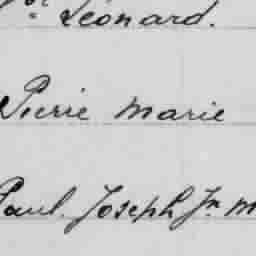 Léonard.
Pierre Marie
Paul. Joseph Jn M